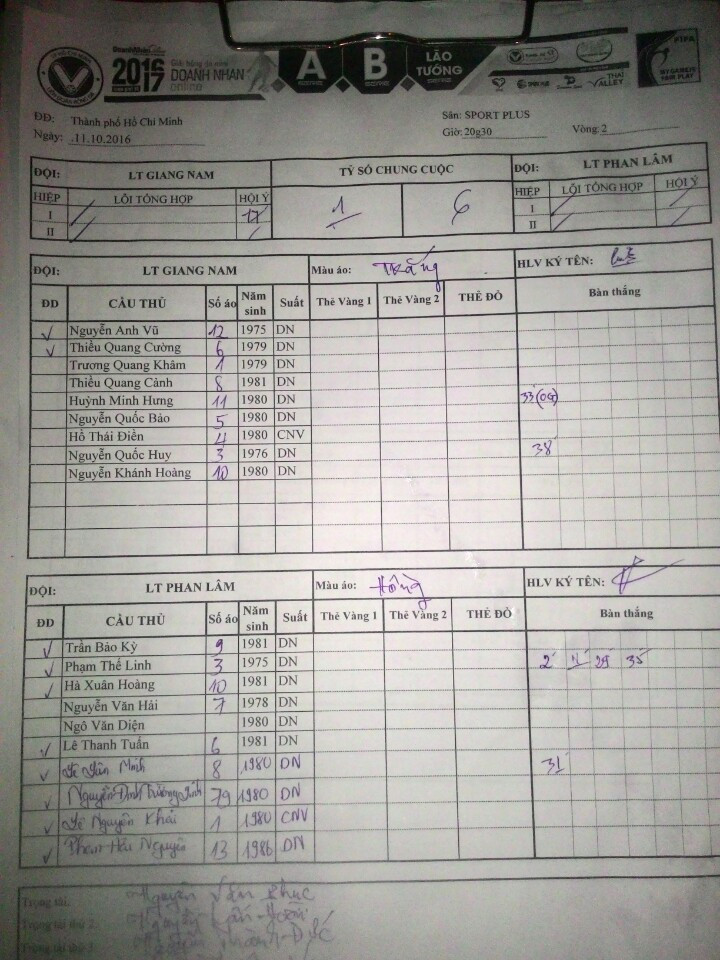 DoanhNhân
2016
2017
Giải bóng đá mini
DOANH NHÂN
online
A B LÃO TƯỚNG
THAI VALLEY
FIFA
MY GAME IS FAIR PLAY
ĐĐ: Thành phố Hồ Chí Minh Sân: SPORT PLUS
Ngày: .11.10.2016 Giờ: 20g30 Vòng: 2
ĐỘI: LT GIANG NAM TỶ SỐ CHUNG CUỘC ĐỘI: LT PHAN LÂM
HIỆP LỖI TỔNG HỢP HỘI Ý 1 6 HIỆP LỖI TỔNG HỢP HỘI Ý
I I
II II
ĐỘI: LT GIANG NAM Màu áo: Trắng HLV KÝ TÊN:
ĐD CẦU THỦ Số áo Năm sinh Suất Thẻ Vàng 1 Thẻ Vàng 2 THẺ ĐỎ Bàn thắng
✓ Nguyễn Anh Vũ 12 1975 DN
✓ Thiều Quang Cường 6 1979 DN
Trương Quang Khâm 1 1979 DN
Thiều Quang Cảnh 8 1981 DN
Huỳnh Minh Hưng 11 1980 DN 33'(OG)
Nguyễn Quốc Bảo 5 1980 DN
Hồ Thái Điền 4 1980 CNV
Nguyễn Quốc Huy 3 1976 DN 38'
Nguyễn Khánh Hoàng 10 1980 DN
ĐỘI: LT PHAN LÂM Màu áo: Hồng HLV KÝ TÊN:
ĐD CẦU THỦ Số áo Năm sinh Suất Thẻ Vàng 1 Thẻ Vàng 2 THẺ ĐỎ Bàn thắng
✓ Trần Bảo Kỳ 9 1981 DN
✓ Phạm Thế Linh 3 1975 DN 2' 11' 29' 35'
✓ Hà Xuân Hoàng 10 1981 DN
Nguyễn Văn Hải 7 1978 DN
Ngô Văn Diện 1980 DN
✓ Lê Thanh Tuấn 6 1981 DN
✓ Minh 8 1980 DN 31'
✓ Nguyễn Đình Trường 79 1980 DN
✓ Lê Nguyên Khải 1 1980 CNV
✓ Phan Hải Nguyên 13 1986 DN
Trọng tài: Nguyễn Văn Phúc
Trọng tài thứ 2: Nguyễn
Trọng tài thứ 3